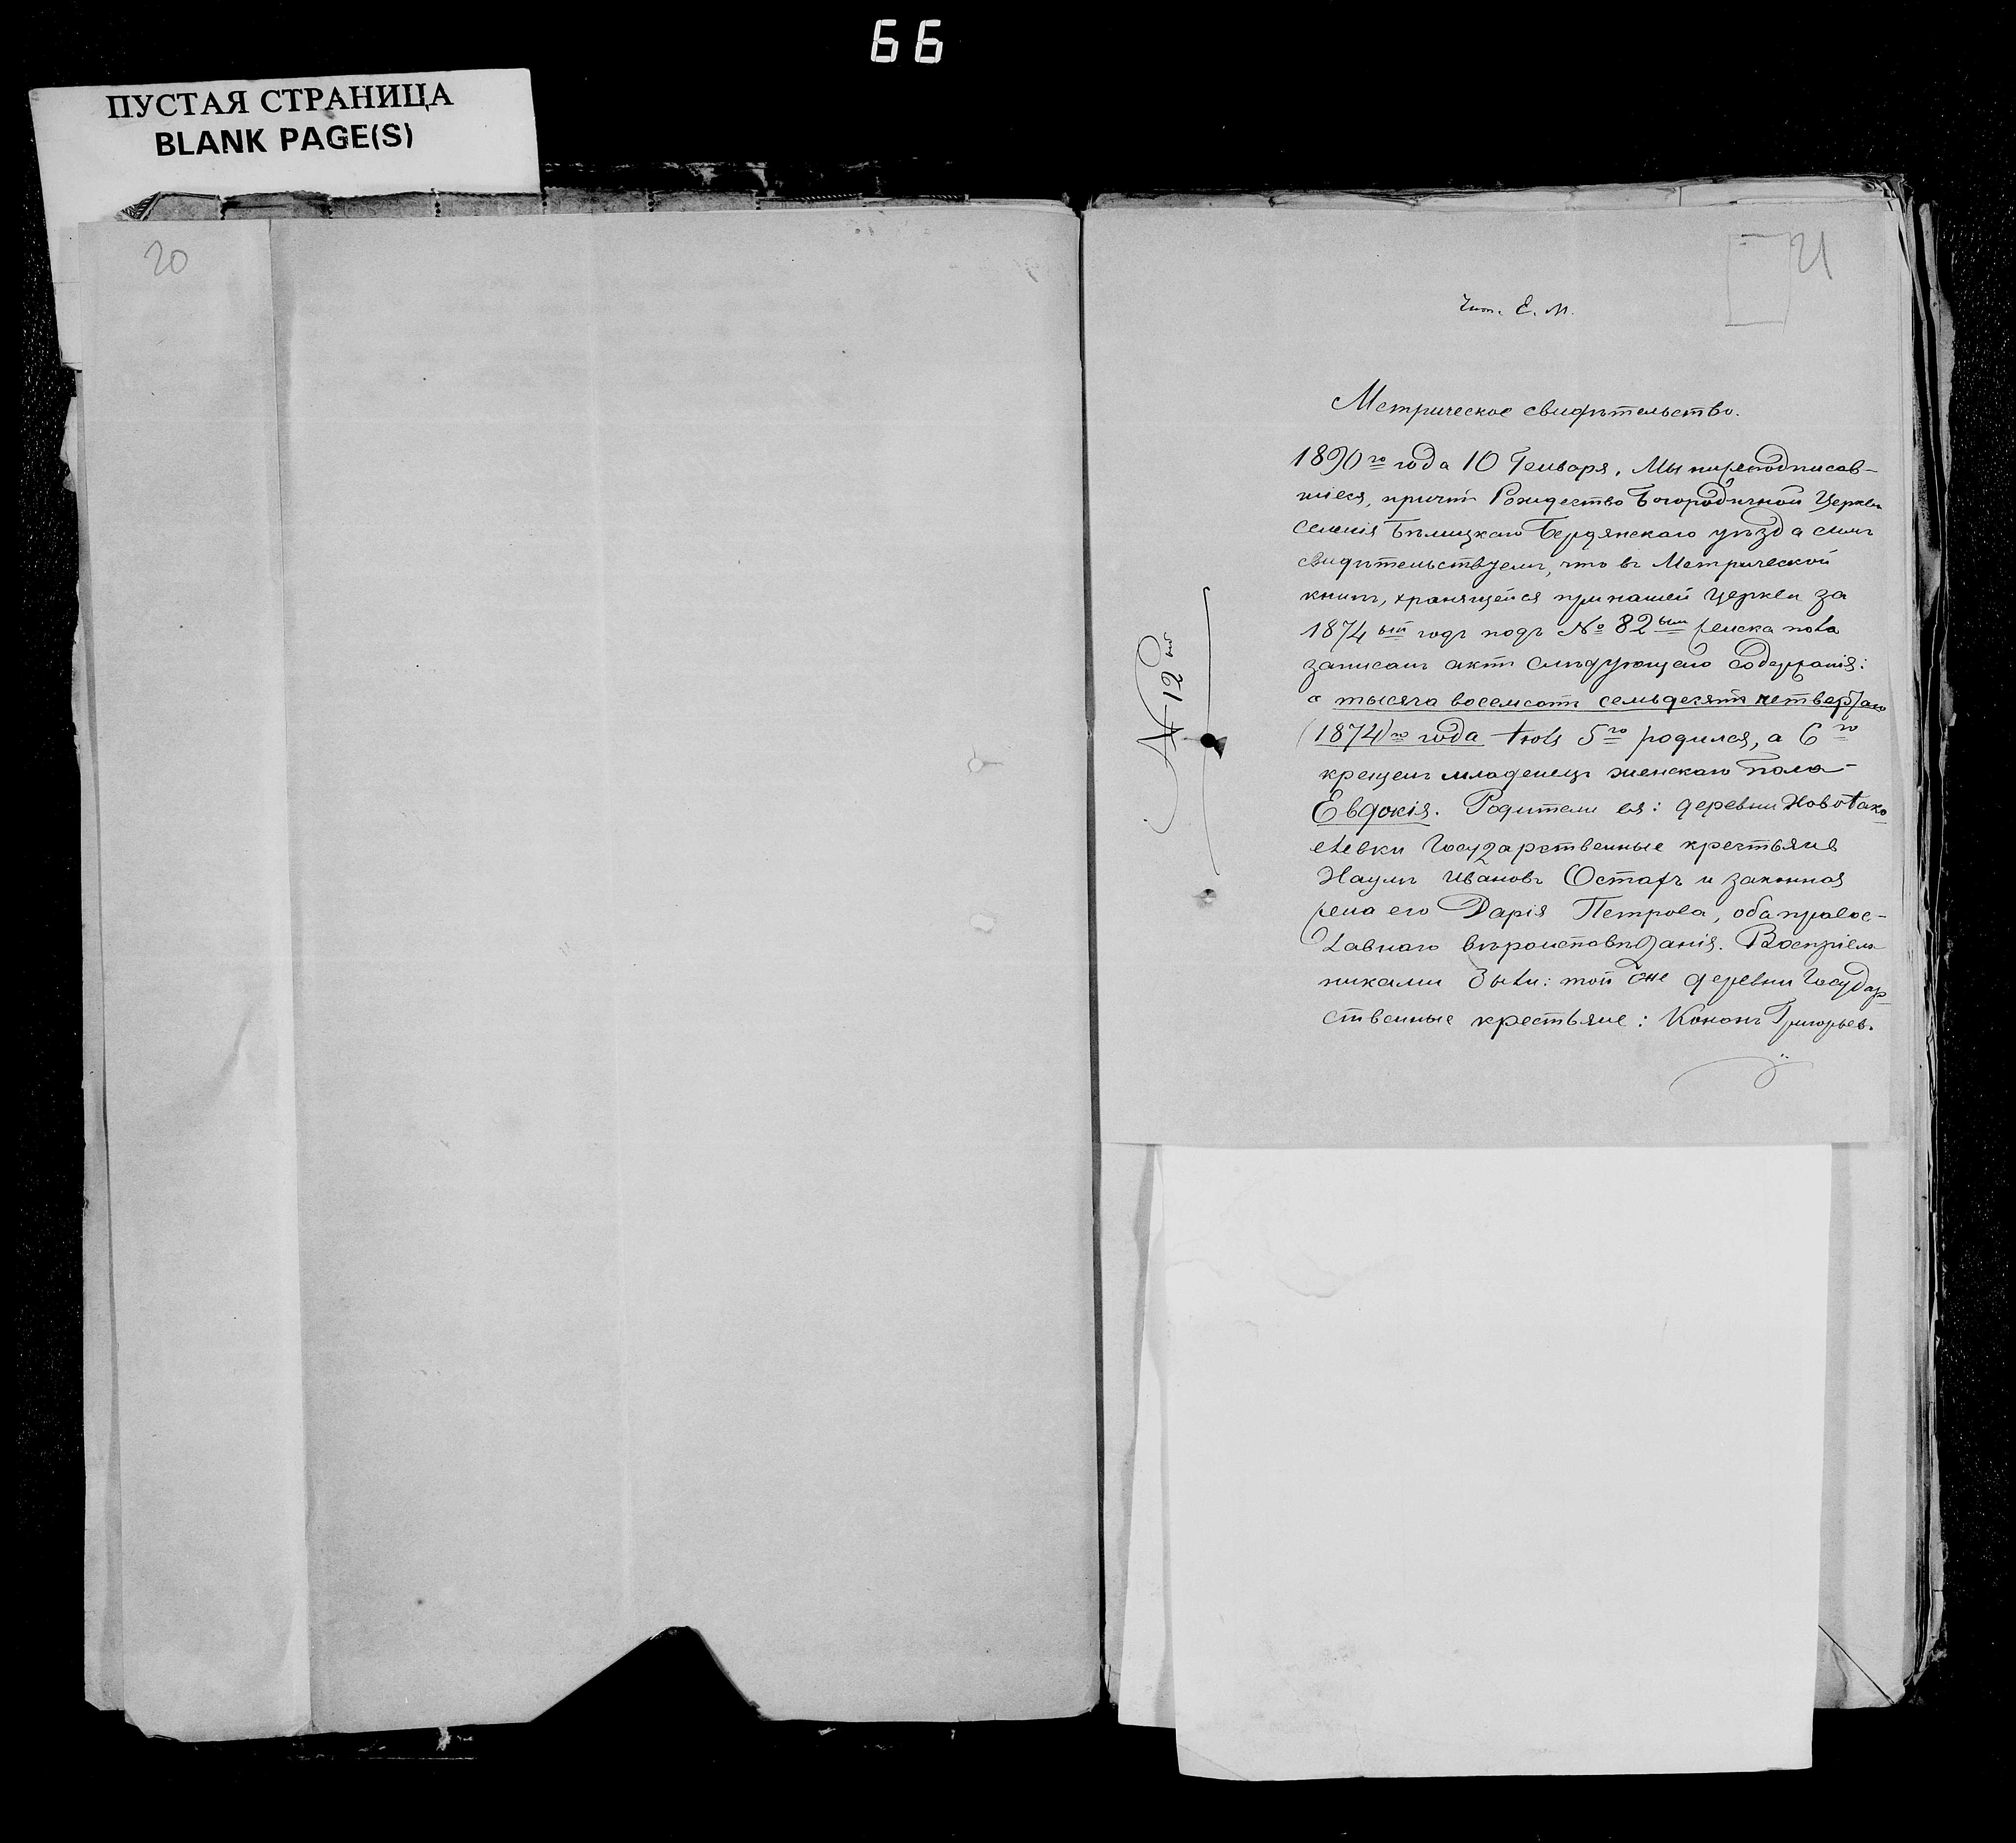 66
ПУСТАЯ СТРАНИЦА
BLANK PAGE(S)
20
21
Е. М.
Метрическое свидѣтельство.
1890го года 10 Генваря, Мы нижеподписав-
шіеся, причтъ Рождество Богородичной Церкви
селенія Бѣлицкаго Бердянскаго уѣзда симъ
свидѣтельствуемъ, что въ Метрической
книгѣ, хранящейся при нашей Церкви за
1874ый годъ подъ № 82ым женска пола
записанъ актъ слѣдующаго содержанія:
а тысяча восемсотъ семьдесятъ четвертаго
(1874)го года Іюля 5го родился, а 6го
крещенъ младенецъ женскаго пола-
Евдокія. Родители ея: деревни Ново
Государственные крестьяне
Наумъ Ивановъ Остахъ и законная
жена его Дарія Петрова, оба правос-
лавнаго вѣроисповѣданія. Воспріем-
никами были: той же деревни Государ-
ственные крестьяне: Кононъ Григорьев.
№ 12ый